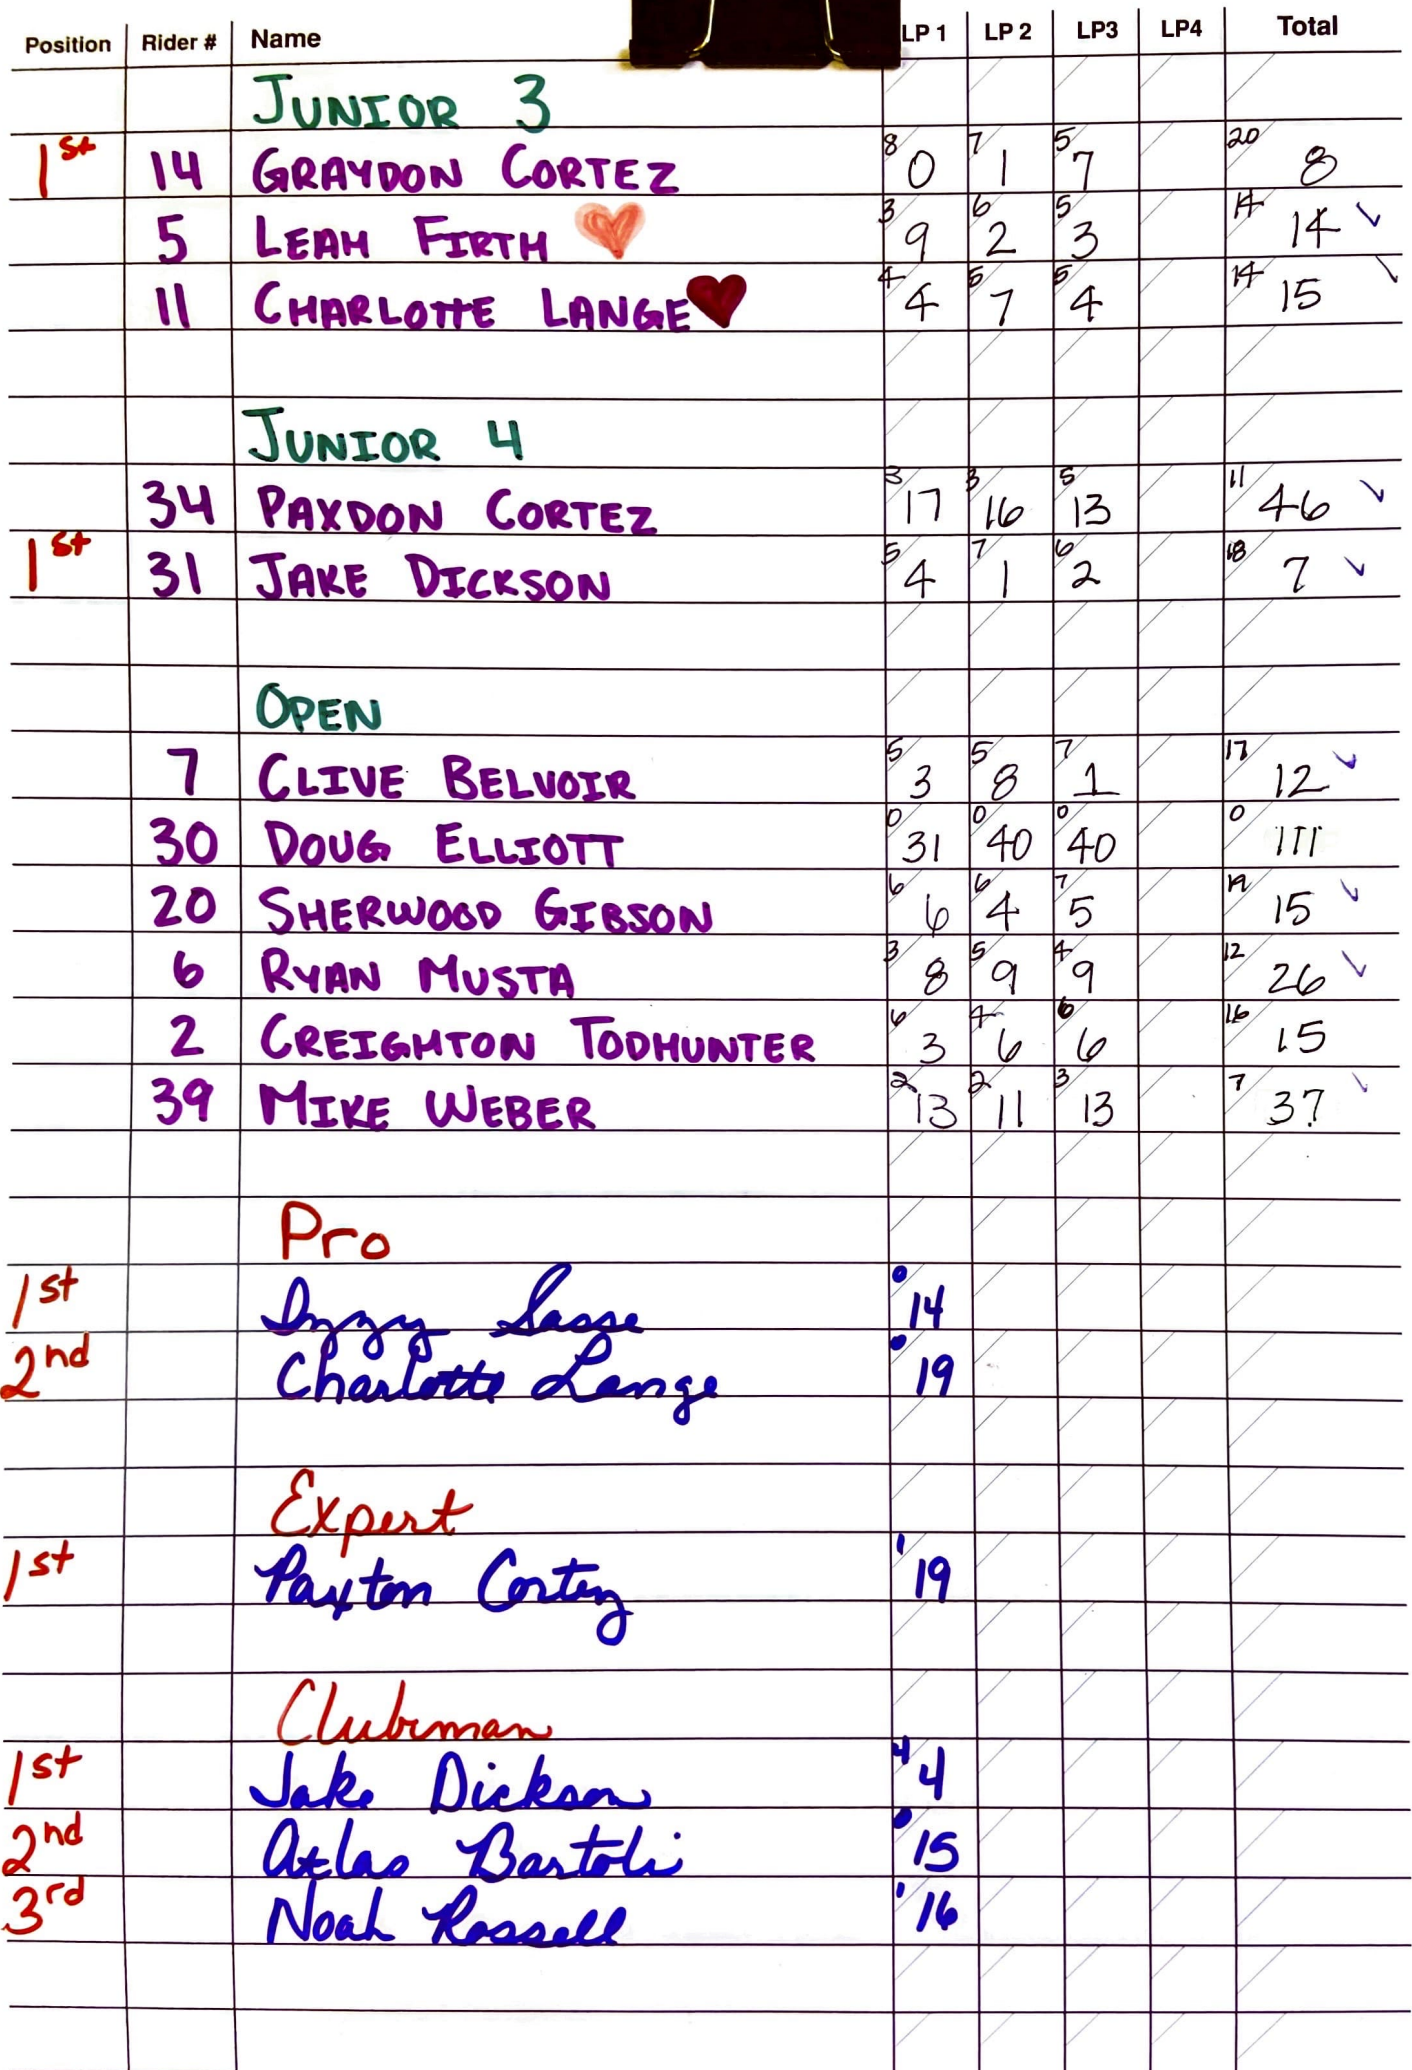 Position Rider # Name LP 1 LP 2 LP3 LP4 Total
JUNIOR 3
1st 14 GRAYDON CORTEZ 8 0 7 1 5 7 20 8
5 LEAH FIRTH 3 9 6 2 5 3 14 14
11 CHARLOTTE LANGE 4 4 5 7 5 4 14 15
JUNIOR 4
34 PAXDON CORTEZ 3 17 3 16 5 13 11 46
1st 31 JAKE DICKSON 5 4 7 1 6 2 18 7
OPEN
7 CLIVE BELVOIR 5 3 5 8 7 1 17 12
30 DOUG ELLIOTT 0 31 0 40 0 40 0 111
20 SHERWOOD GIBSON 6 6 6 4 7 5 19 15
6 RYAN MUSTA 3 8 5 9 4 9 12 26
2 CREIGHTON TODHUNTER 6 3 4 6 6 6 16 15
39 MIKE WEBER 2 13 2 11 3 13 7 37
Pro
1st Izzy Sasse 0 14
2nd Charlotte Lange 0 19
Expert
1st Paxton Cortez 1 19
Clubman
1st Jake Dickson 4 4
2nd Atlas Bartoli 0 15
3rd Noah Rossell 1 16